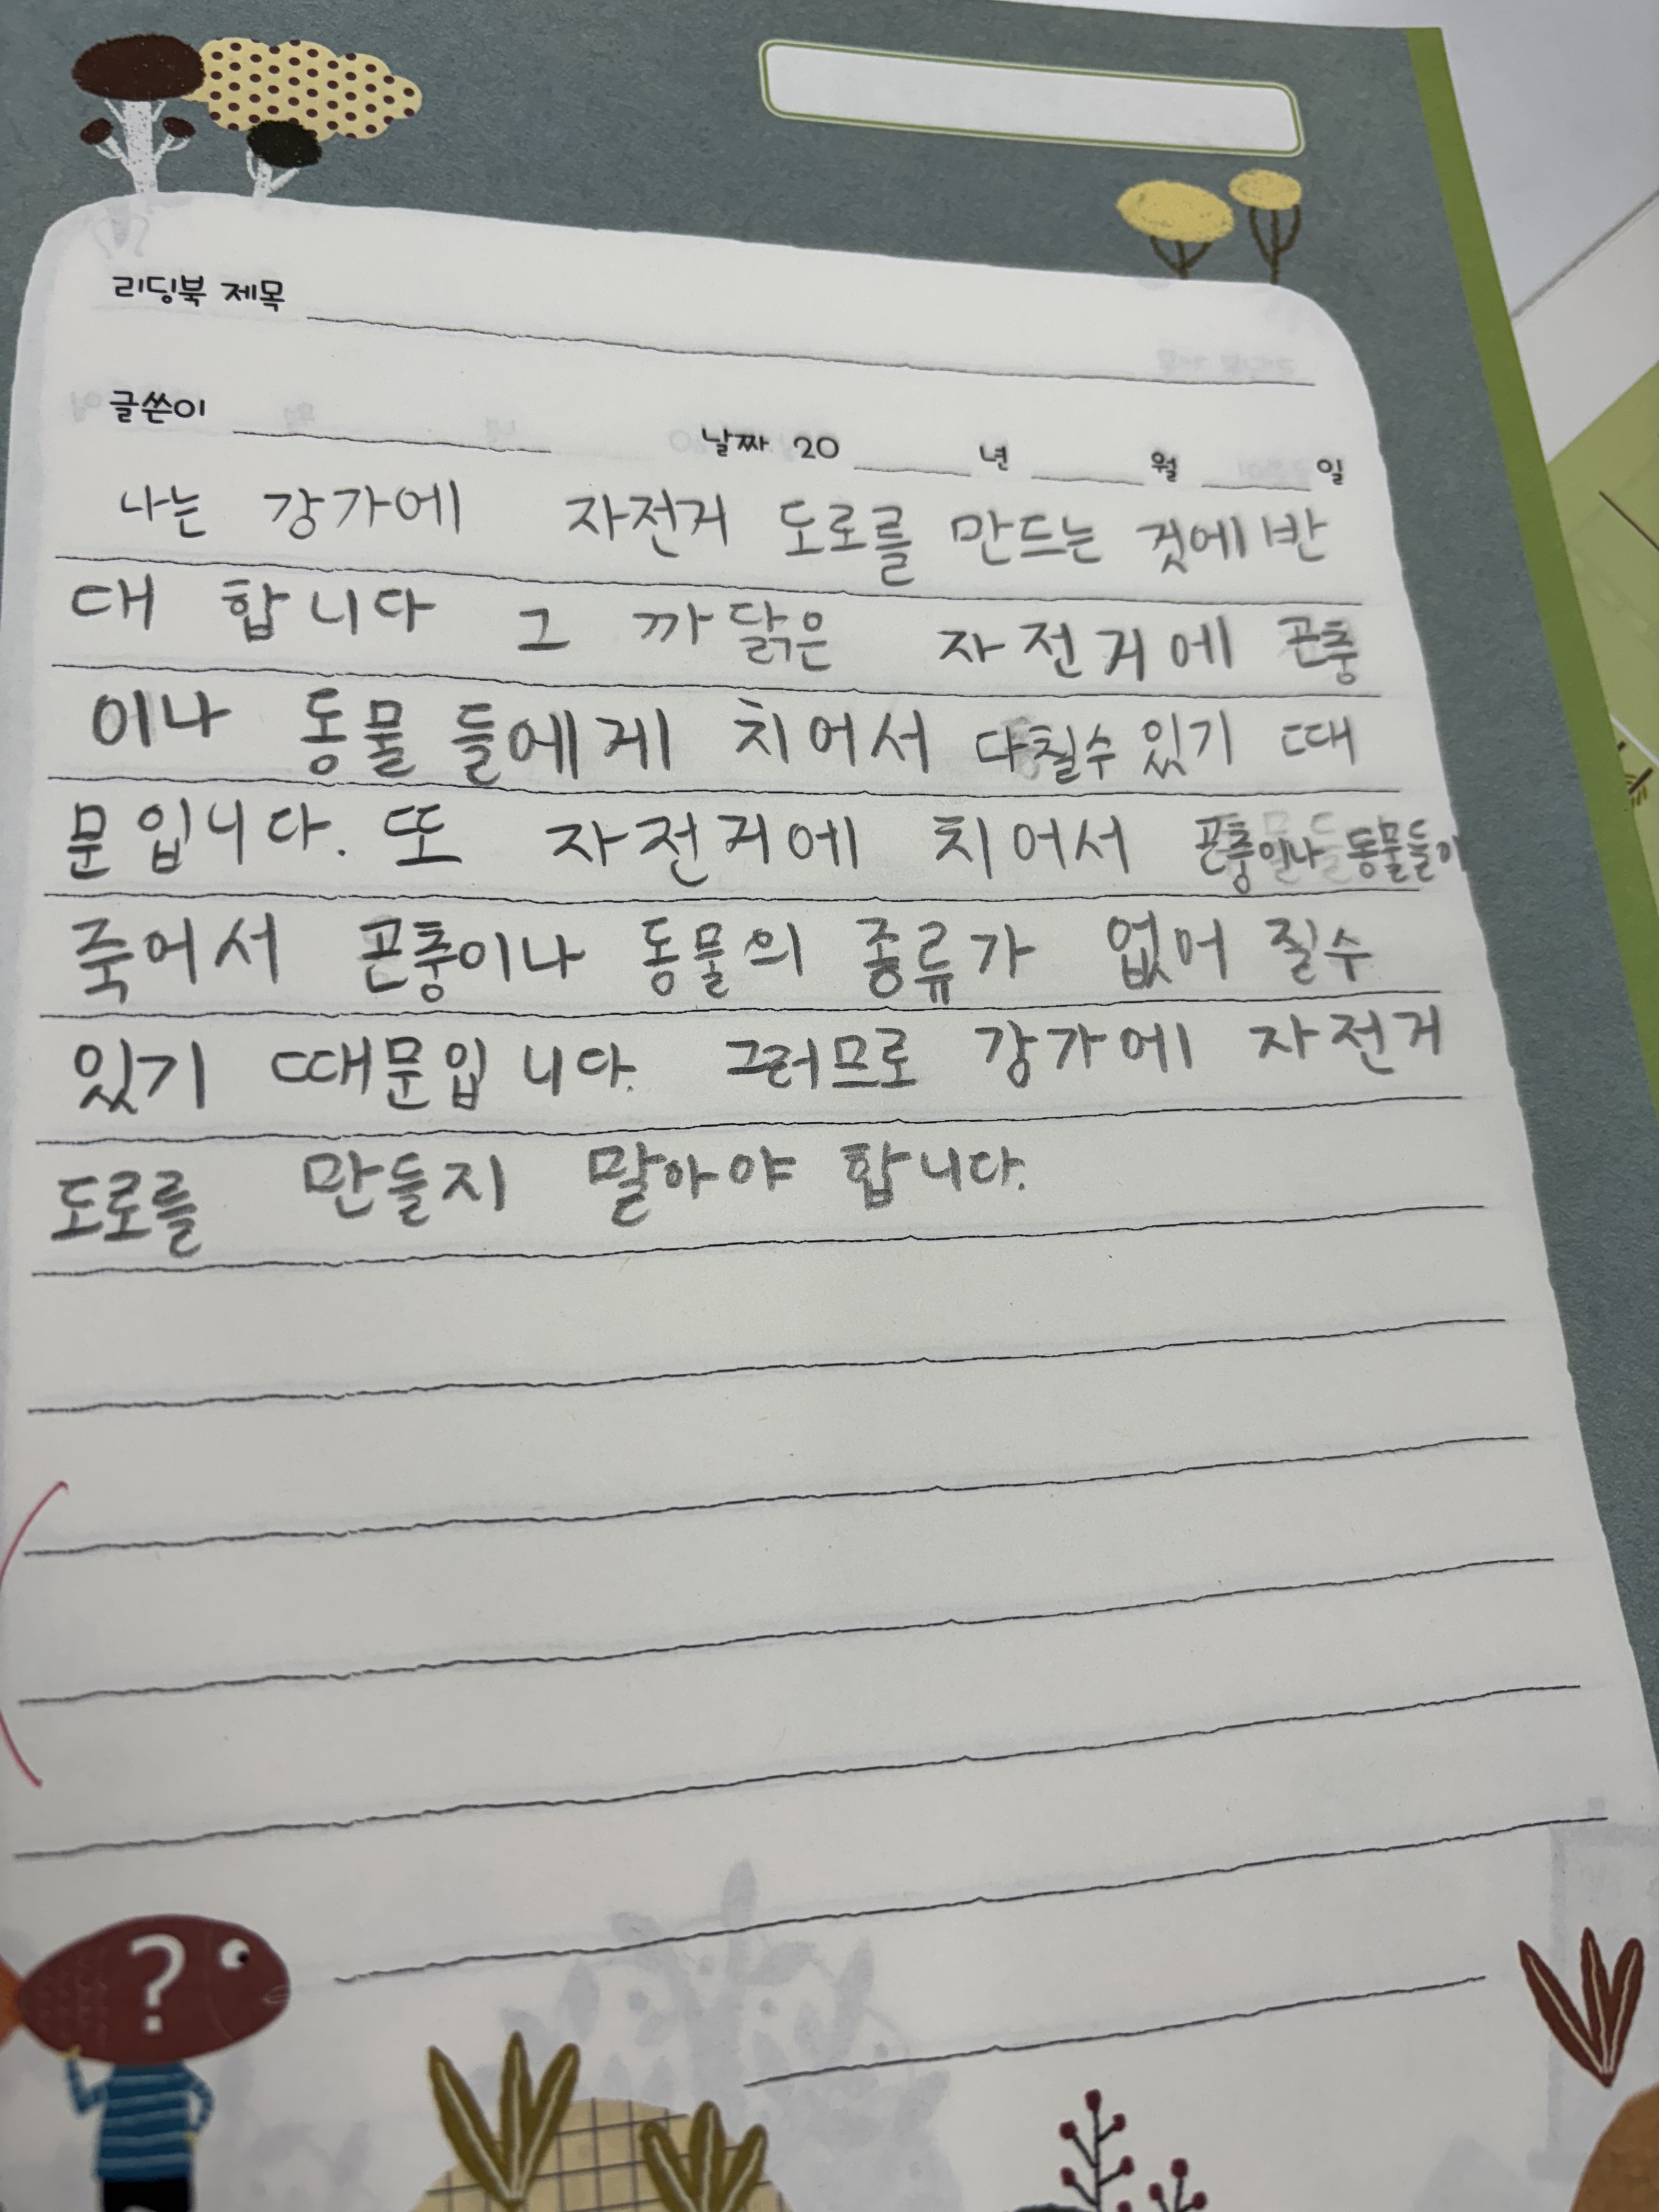 리딩북 제목
글쓴이 날짜 20 년 월 일
나는 강가에 자전거 도로를 만드는 것에 반
대 합니다 그 까닭은 자전거에 곤충
이나 동물 들에게 치어서 다칠수 있기 때
문입니다. 또 자전거에 치어서 곤충이나 동물들이
죽어서 곤충이나 동물의 종류가 없어 질수
있기 때문입니다. 그러므로 강가에 자전거
도로를 만들지 말아야 합니다.
?